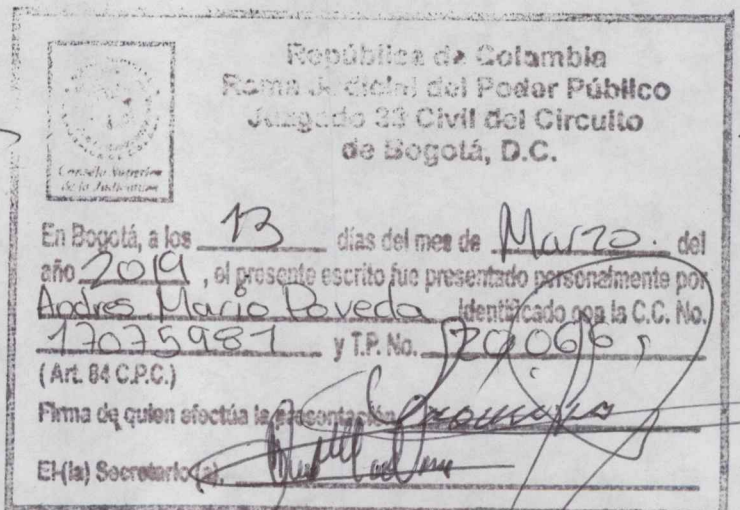 República de Colombia
Rama Judicial del Poder Público
Juzgado 33 Civil del Circuito
de Bogotá, D.C.
Consejo Superior
de la Judicatura
En Bogotá, a los 13 días del mes de Marzo. del
año 2019, el presente escrito fue presentado personalmente por
Andres Mario Poveda Identificado con la C.C. No.
17075981 y T.P. No. 20.066
(Art. 84 C.P.C.)
Firma de quien efectúa la presentación
El (la) Secretario (a).